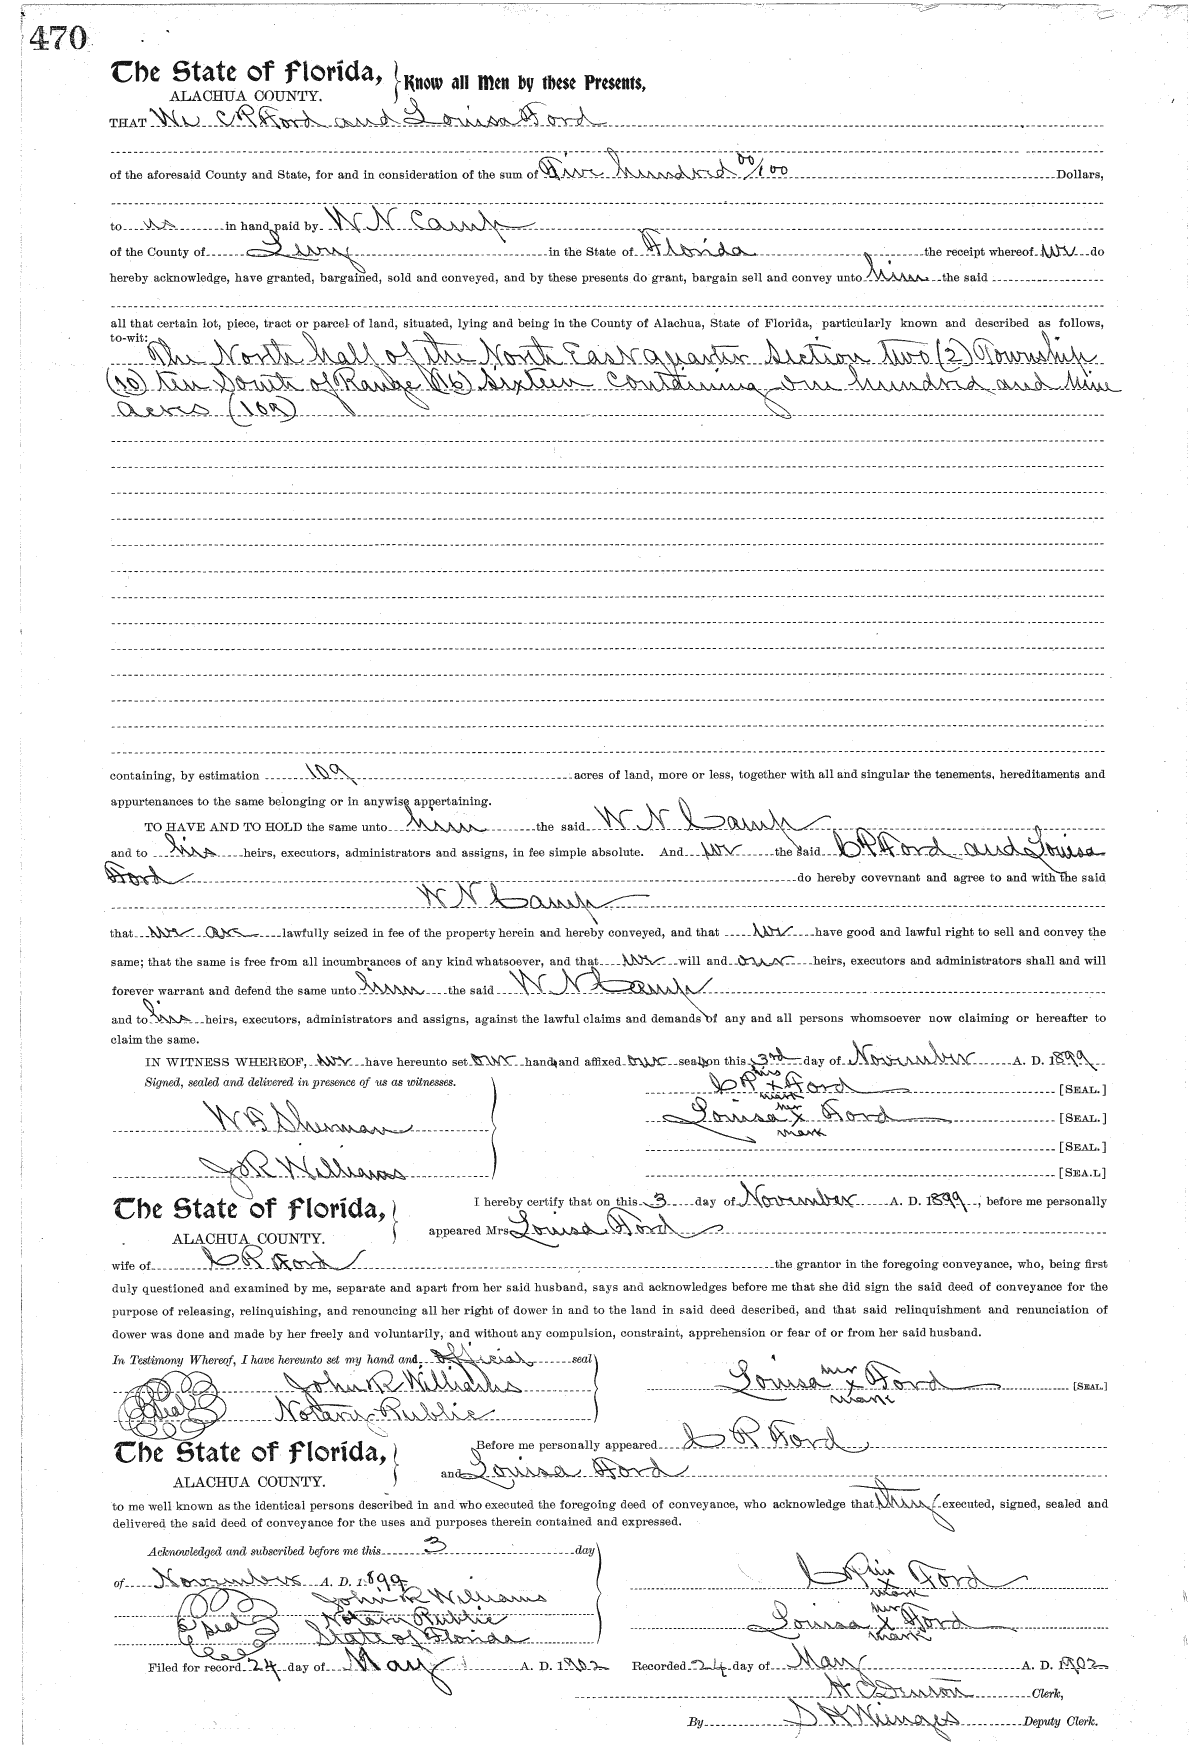 470
The State of Florida, } Know all Men by these Presents,
ALACHUA COUNTY.
THAT We C P Ford and Louisa Ford
of the aforesaid County and State, for and in consideration of the sum of Five hundred 00/100 Dollars,
to us in hand paid by W N Camp
of the County of Levy in the State of Florida the receipt whereof we do
hereby acknowledge, have granted, bargained, sold and conveyed, and by these presents do grant, bargain sell and convey unto him the said
all that certain lot, piece, tract or parcel of land, situated, lying and being in the County of Alachua, State of Florida, particularly known and described as follows,
to-wit: The North half of the North East quarter Section two (2) Township
(10) ten South of Range (16) Sixteen Containing one hundred and Nine
Acres (109)
containing, by estimation 109 acres of land, more or less, together with all and singular the tenements, hereditaments and
appurtenances to the same belonging or in anywise appertaining.
TO HAVE AND TO HOLD the same unto him the said W N Camp
and to his heirs, executors, administrators and assigns, in fee simple absolute. And we the said C P Ford and Louisa
Ford do hereby covevnant and agree to and with the said
W N Camp
that we are lawfully seized in fee of the property herein and hereby conveyed, and that we have good and lawful right to sell and convey the
same; that the same is free from all incumbrances of any kind whatsoever, and that we will and our heirs, executors and administrators shall and will
forever warrant and defend the same unto him the said W N Camp
and to his heirs, executors, administrators and assigns, against the lawful claims and demands of any and all persons whomsoever now claiming or hereafter to
claim the same.
IN WITNESS WHEREOF, we have hereunto set our hands and affixed our seals on this 3rd day of November A. D. 1899
Signed, sealed and delivered in presence of us as witnesses.
C P his x mark Ford [SEAL.]
W B Shuman
Louisa her x mark Ford [SEAL.]
[SEAL.]
Jo R Williams
[SEA.L]
The State of Florida, } I hereby certify that on this 3 day of November A. D. 1899, before me personally
ALACHUA COUNTY. appeared Mrs Louisa Ford
wife of C P Ford the grantor in the foregoing conveyance, who, being first
duly questioned and examined by me, separate and apart from her said husband, says and acknowledges before me that she did sign the said deed of conveyance for the
purpose of releasing, relinquishing, and renouncing all her right of dower in and to the land in said deed described, and that said relinquishment and renunciation of
dower was done and made by her freely and voluntarily, and without any compulsion, constraint, apprehension or fear of or from her said husband.
In Testimony Whereof, I have hereunto set my hand and official seal
John R Williams
Louisa her x mark Ford [SEAL.]
Seal Notary Public
The State of Florida, } Before me personally appeared C P Ford
ALACHUA COUNTY. and Louisa Ford
to me well known as the identical persons described in and who executed the foregoing deed of conveyance, who acknowledge that they executed, signed, sealed and
delivered the said deed of conveyance for the uses and purposes therein contained and expressed.
Acknowledged and subscribed before me this 3 day
of November A. D. 1899
C P his x mark Ford
John R Williams
Seal Notary Public
Louisa her x mark Ford
State of Florida
Filed for record 24 day of May A. D. 1902 Recorded 24 day of May A. D. 1902
H C Denton Clerk,
By S H Wienges Deputy Clerk.